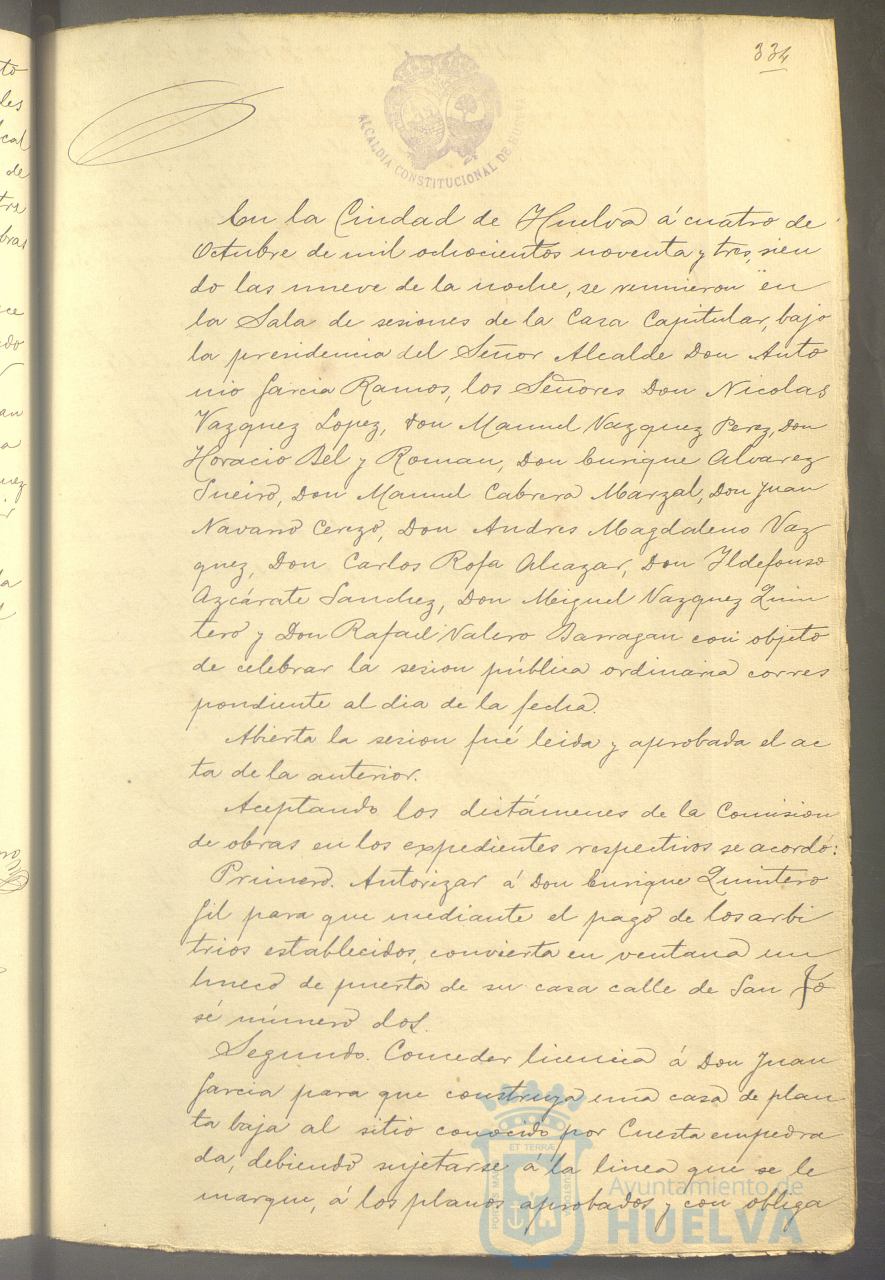 334
ALCALDIA CONSTITUCIONAL DE HUELVA
En la Ciudad de Huelva á cuatro de
Octubre de mil ochocientos noventa y tres, sien
do las nueve de la noche, se reunieron en
la Sala de sesiones de la Casa Capitular, bajo
la presidencia del Señor Alcalde Don Anto
nio Garcia Ramos, los Señores Don Nicolas
Vazquez Lopez, Don Manuel Vazquez Perez, Don
Horacio Bél y Roman, Don Enrique Alvarez
Sueiro, Don Manuel Cabrera Marzal, Don Juan
Navarro Cerezo, Don Andres Magdaleno Vaz
quez, Don Carlos Rofa Alcazar, Don Ildefonso
Azcárate Sanchez, Don Miguel Vazquez Quin
tero y Don Rafael Valero Barragan con objeto
de celebrar la sesion pública ordinaria corres
pondiente al dia de la fecha.
Abierta la sesion fué leida y aprobada el ac
ta de la anterior.
Aceptando los dictámenes de la Comision
de obras en los expedientes respectivos se acordó:
Primero. Autorizar á Don Enrique Quintero
Gil para que mediante el pago de los arbi
trios establecidos, convierta en ventana un
hueco de puerta de su casa calle de San Jo
sé número dos.
Segundo. Conceder licencia á Don Juan
Garcia para que construya una casa de plan
ta baja al sitio conocido por Cuesta empedra
da, debiendo sujetarse á la linea que se le
marque, á los planos aprobados y con obliga
Ayuntamiento de
HUELVA